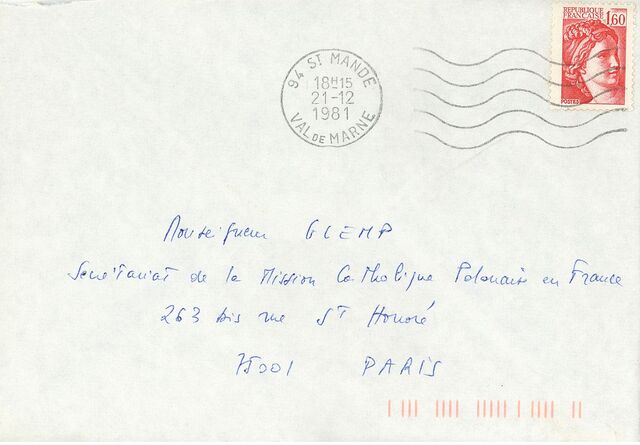 REPUBLIQUE
FRANÇAISE 1,60
POSTES
94 ST MANDE
18H15
21-12
1981
VAL DE MARNE
Monseigneur GLEMP
Secrétariat de la Mission Catholique Polonaise en France
263 bis rue ST Honoré
75001 PARIS